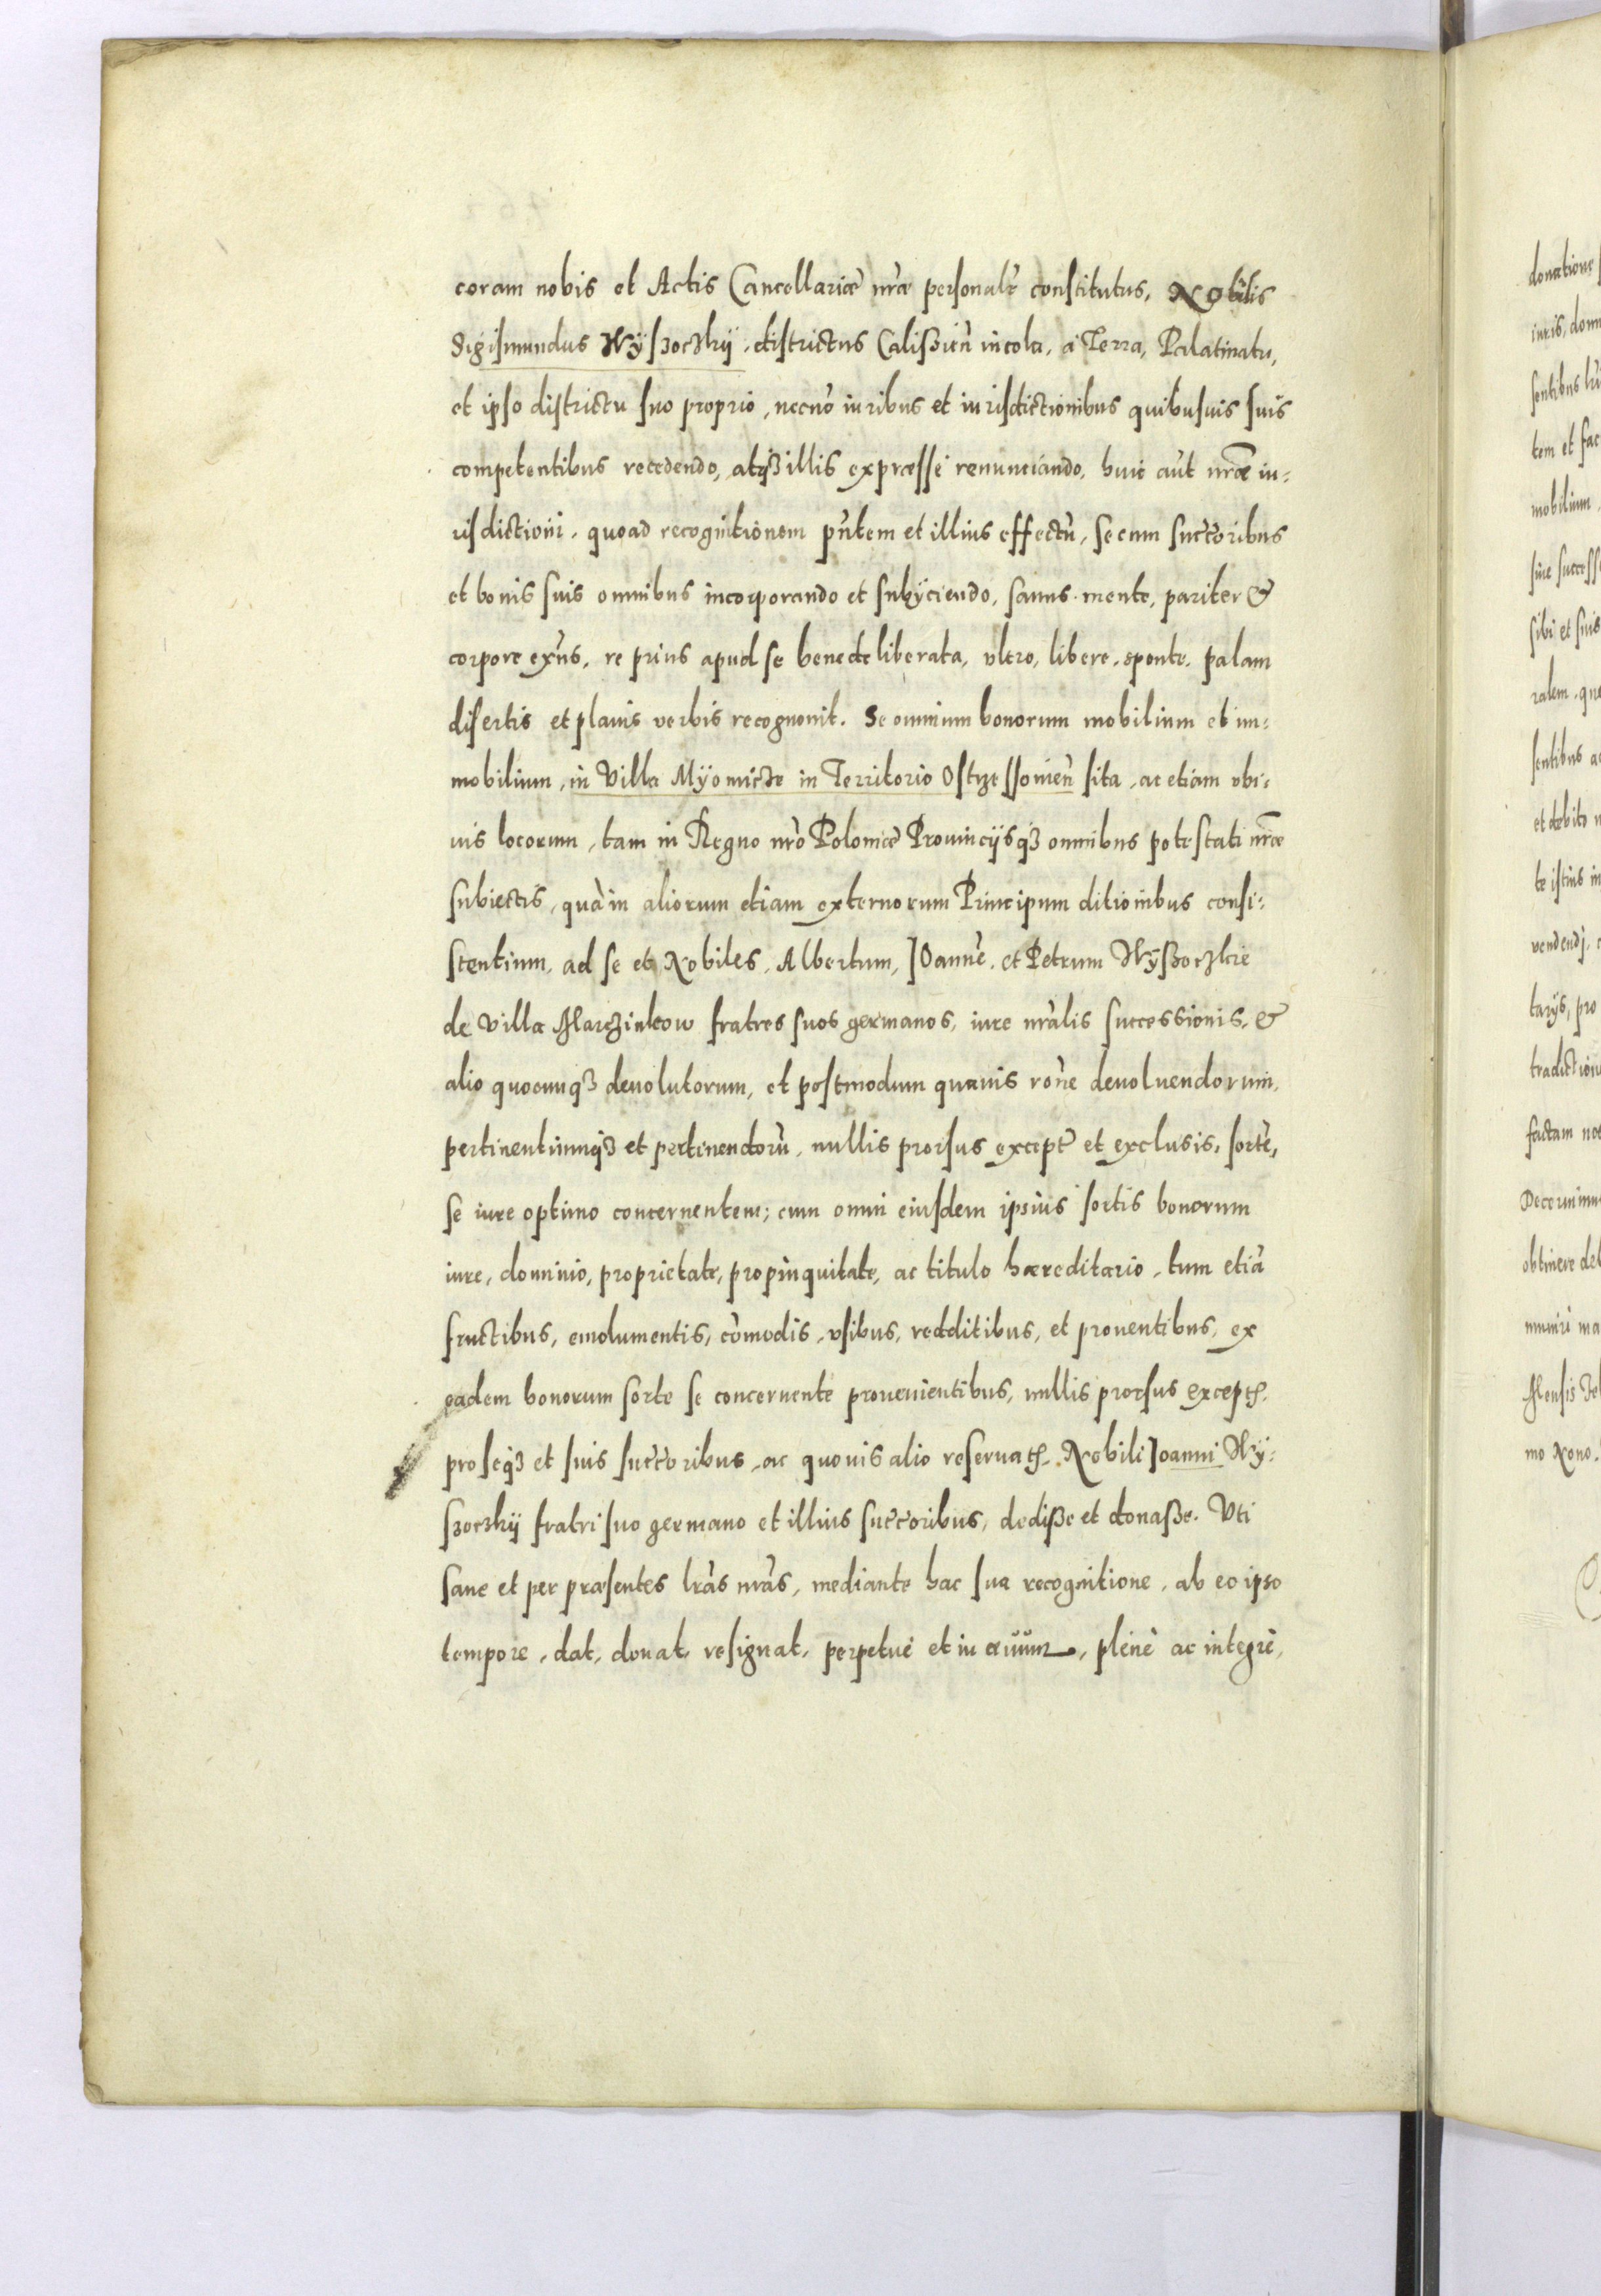 coram nobis et Actis Cancellariæ nr̃æ personalr̃ constitutus, Nobilis
Sigismundus Wÿſzoczkij, districtus Caliſzien̄ incola, à Terra, Palatinatu,
et ipso districtu suo proprio, necnō iuribus et iurisdictionibus quibusuis suis
competentibus recedendo, atq₃ illis expræsse renunciando, huic aūt nr̃æ iu-
risdictioni, quoad recognitionem pñtem et illius effectū, se cum succ̃oribus
et bonis suis omnibus incorporando et subijciendo, sanus mente, pariter &
corpore exñs, re prius apud se bene deliberata, vltro, libere, sponte, palam
disertis et planis verbis recognouit. Se omnium bonorum mobilium et im-
mobilium, in Villa Mÿomicze in Territorio Ostrzeſſouien̄ sita, ac etiam vbi-
uis locorum, tam in Regno nr̃o Poloniæ Prouincijsq₃ omnibus potestati nr̃æ
subiectis, quā in aliorum etiam externorum Principum ditionibus consi-
stentium, ad se et Nobiles, Albertum, Ioannē, et Petrum Wÿſzoczkie
de Villa Marczinkow fratres suos germanos, iure nr̃alis successionis, &
alio quocunq₃ deuolutorum, et postmodum quauis rōne deuoluendorum,
pertinentiumq₃ et pertinendorū, nullis prorsus except̃ et exclusis, sortē,
se iure optimo concernentem; cum omni eiusdem ipsius sortis bonorum
iure, dominio, proprietate, propinquitate, ac titulo hæreditario, tum etiā
fructibus, emolumentis, cōmodis, vsibus, redditibus, et prouentibus, ex
eadem bonorum sorte se concernente prouenientibus, nullis prorsus except̃,
pro seq₃ et suis succ̃oribus, ac quouis alio reseruat̃, Nobili Ioanni Wÿ-
ſzoczkij fratri suo germano et illius succ̃oribus, dediſse et donaſse. Vti
sane et per præsentes lr̃as nr̃as, mediante hac sua recognitione, ab eo ipso
tempore, dat, donat, resignat, perpetuè et in æuum, plenè ac integrè,
donatione
iuris, dom
sentibus lr̃
tem et fac
mobilium,
siue success
sibi et suis
ralem, qu
sentibus ac
et debito
te istius in
vendendj,
tarijs, pro
tradiction
factam
Decernimu
obtinere deb
muniri ma
Mensis Fe
mo Nono.